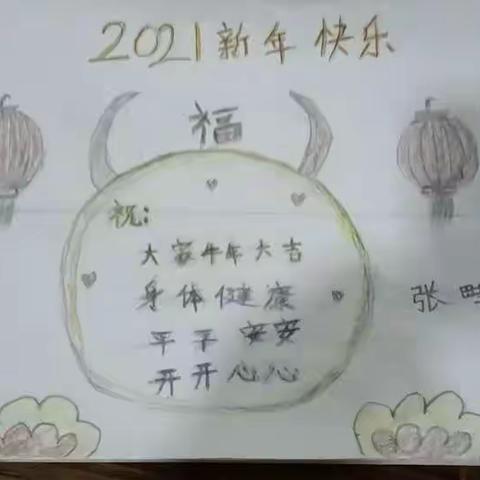 2021新年快乐
福
祝:
大家牛年大吉
身体健康
平子安安
开开心心
张